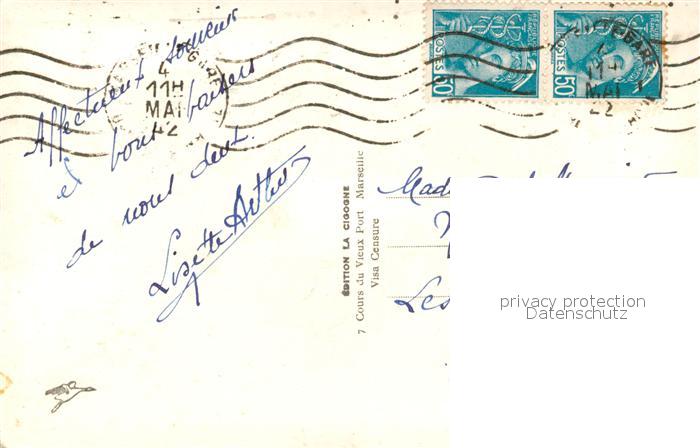 4
11H
MAI
42
POSTES
50
POSTES
50
4
11H
MAI
42
Affectueux souvenir
et bons baisers
de nous deux.
Lisette Arthur
ÉDITION LA CIGOGNE
7 Cours du Vieux Port Marseille
Visa Censure
Les
privacy protection
Datenschutz